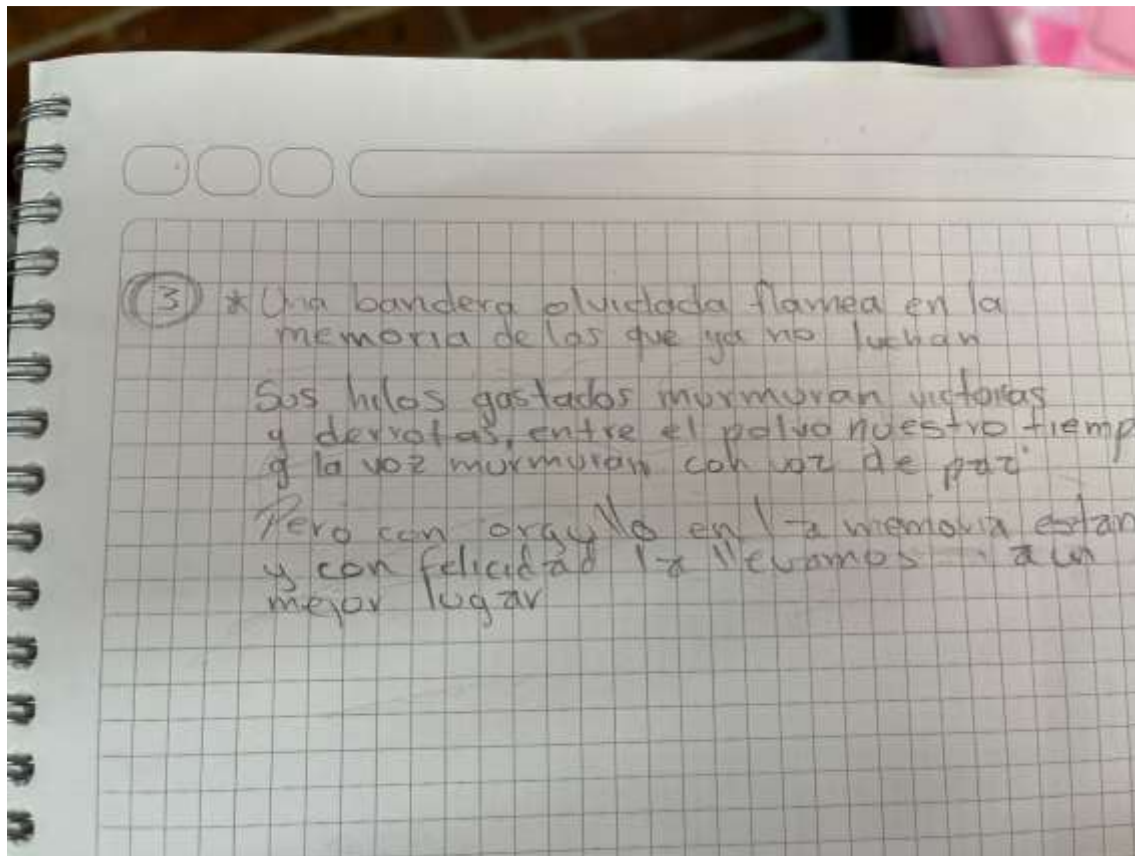 3 * Una bandera olvidada flamea en la
memoria de los que ya no luchan
Sus hilos gastados murmuran victorias
y derrotas, entre el polvo nuestro tiemp
y la voz murmuran con voz de paz
Pero con orgullo en la memoria estan
y con felicidad la llevamos a un
mejor lugar